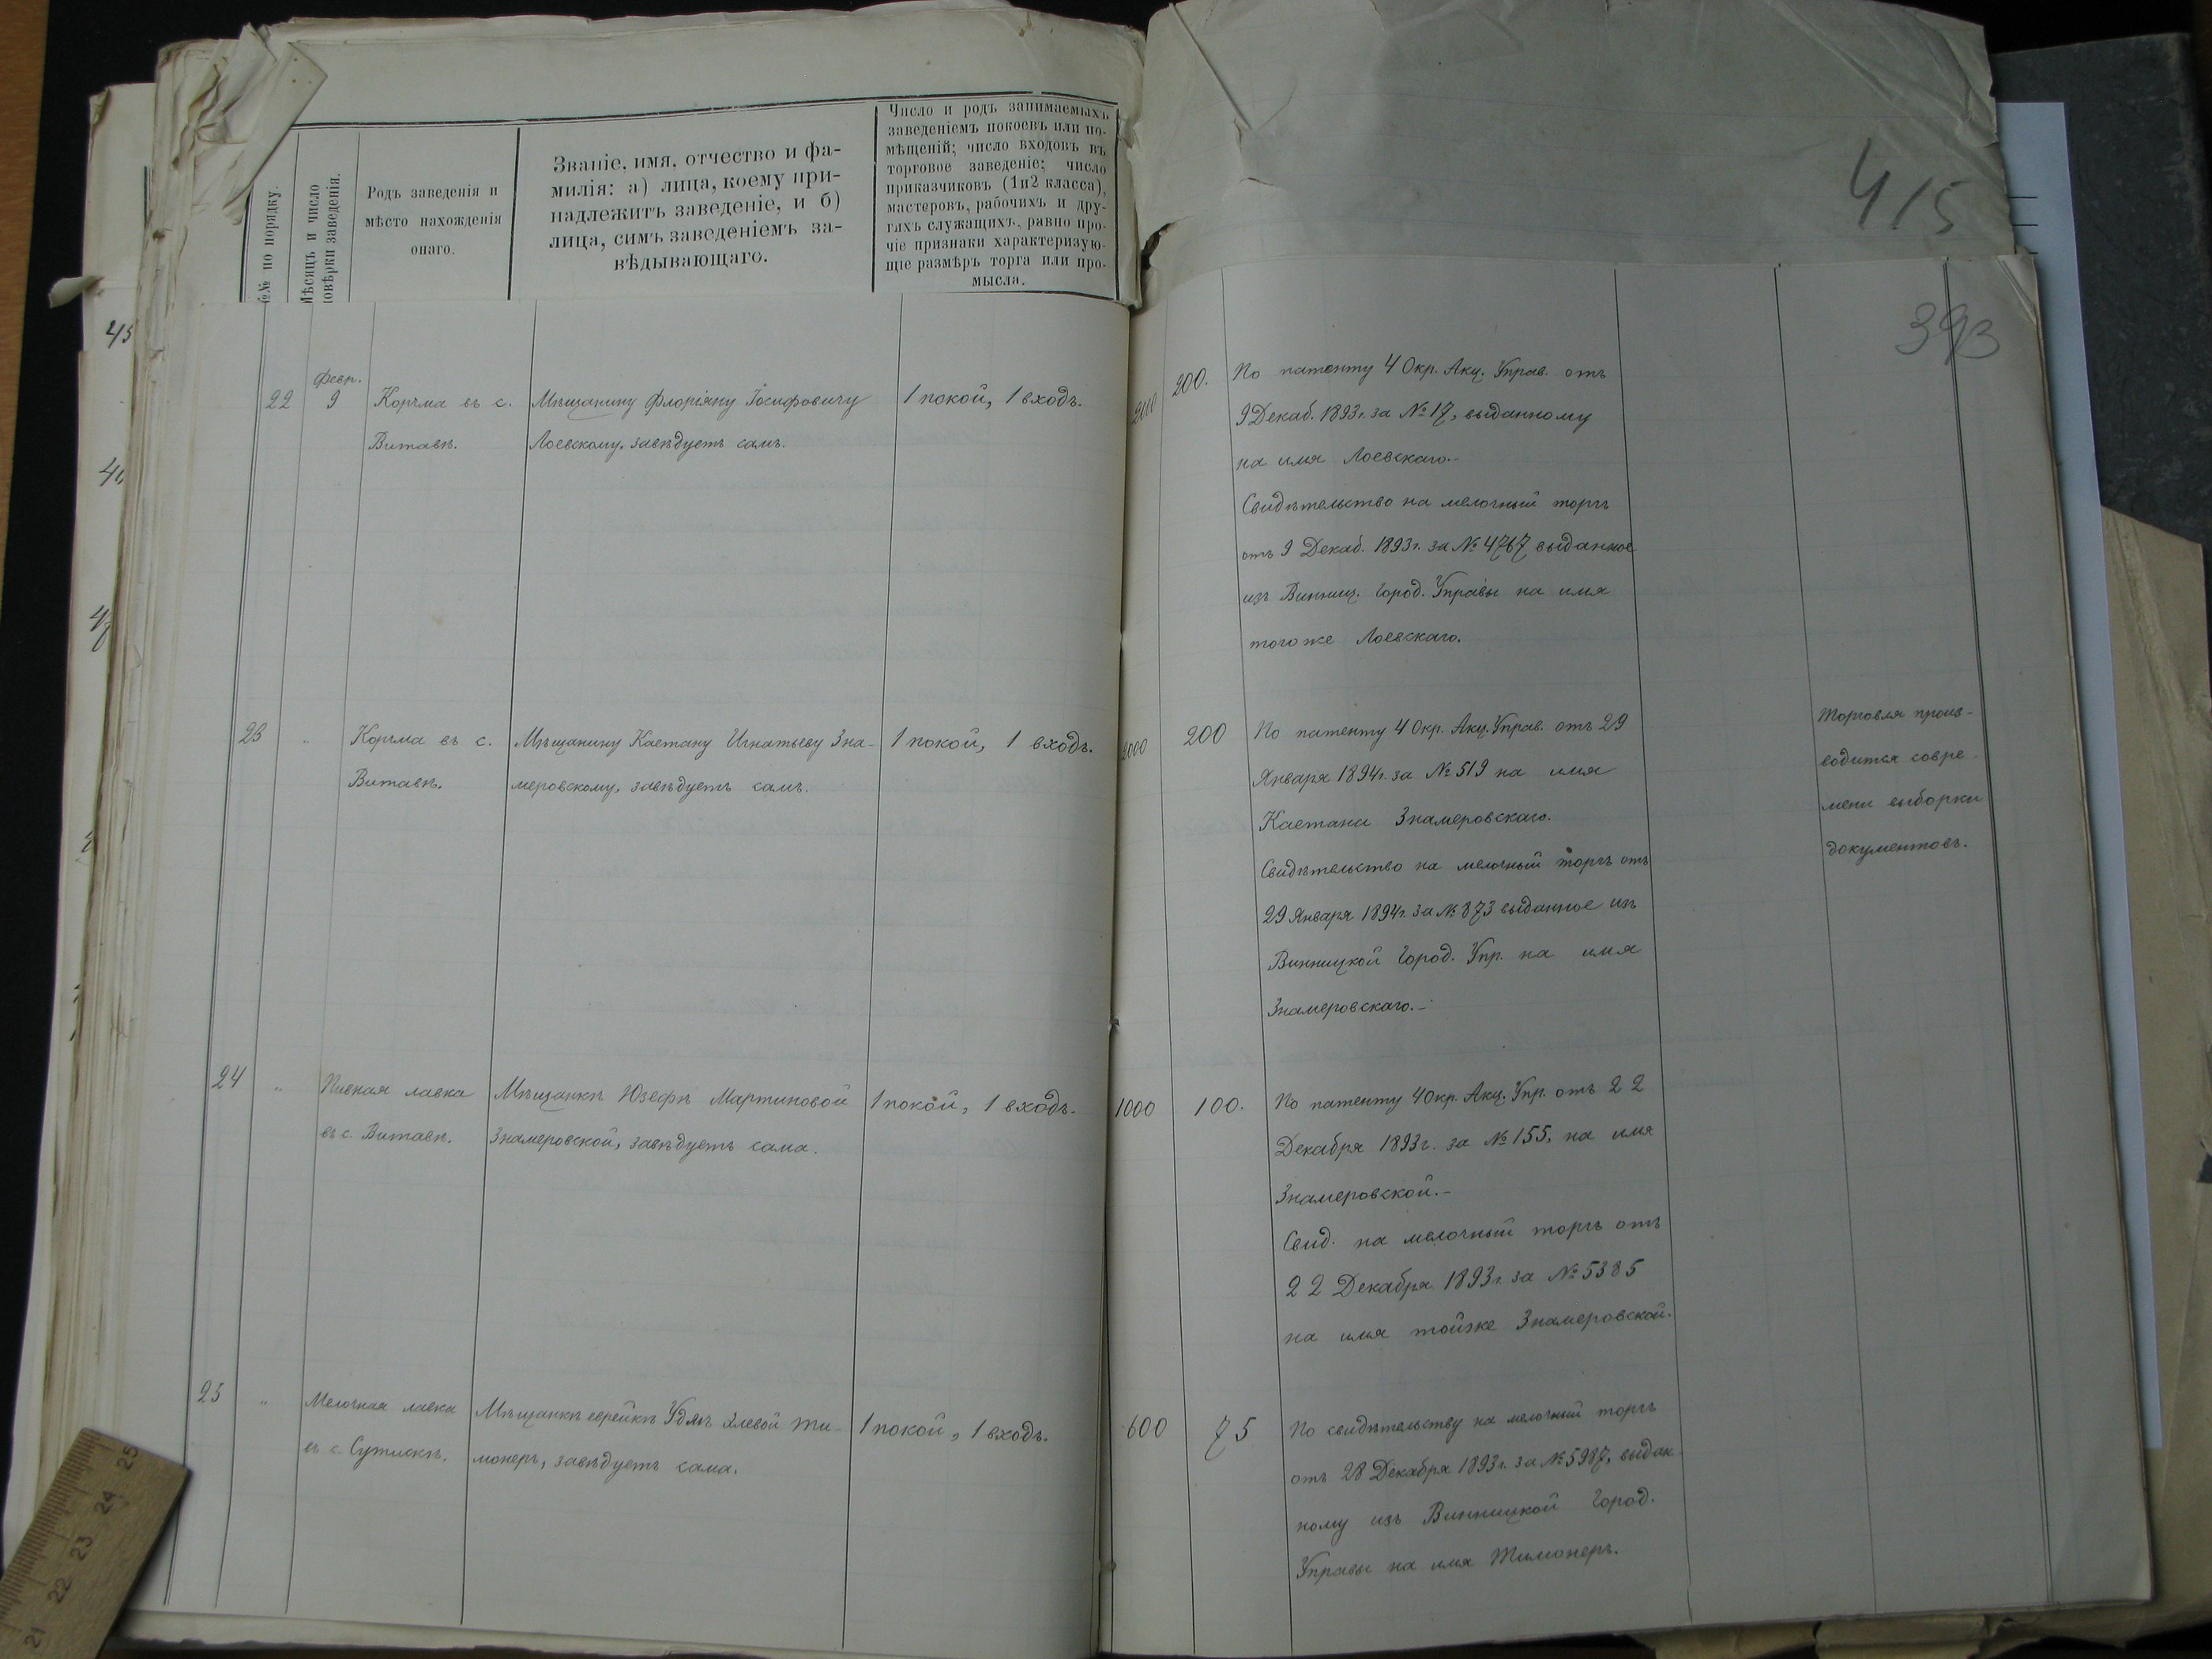 №№ по порядку.
Мѣсяцъ и число
повѣрки заведенія.
Родъ заведенія и
мѣсто нахожденія
онаго.
Званіе, имя, отчество и фа-
милія: а) лица, коему при-
надлежитъ заведеніе, и б)
лица, симъ заведеніемъ за-
вѣдывающаго.
Число и родъ занимаемыхъ
заведеніемъ покоевъ или по-
мѣщеній; число входовъ въ
торговое заведеніе; число
приказчиковъ (1и2 класса),
мастеровъ, рабочихъ и дру-
гихъ служащихъ, равно про-
чіе признаки характеризую-
щіе размѣръ торга или про-
мысла.
415
393
22
Февр.
9
Корчма въ с.
Витавѣ.
Мѣщанину Флоріяну Іосифовичу
Лоевскому, завѣдуетъ самъ.
1 покой, 1 входъ.
2000
200.
По патенту 4 Окр. Акц. Управ. отъ
9 Декаб. 1893 г. за № 17, выданному
на имя Лоевскаго.-
Свидѣтельство на мелочный торгъ
отъ 9 Декаб. 1893 г. за № 4767 выданное
изъ Винниц. Город. Управы на имя
того же Лоевскаго.
23
"
Корчма въ с.
Витавѣ.
Мѣщанину Каетану Игнатьеву Зна-
меровскому, завѣдуетъ самъ.
1 покой, 1 входъ.
2000
200
По патенту 4 Окр. Акц. Управ. отъ 29
Января 1894 г. за № 519 на имя
Каетана Знамеровскаго.
Свидѣтельство на мелочный торгъ отъ
29 Января 1894 г. за № 873 выданное изъ
Винницкой Город. Упр. на имя
Знамеровскаго.-
Торговля произ-
водится совре-
мени выборки
документовъ.
24
"
Пивная лавка
въ с. Витавѣ.
Мѣщанкѣ Юзефѣ Мартиновой
Знамеровской, завѣдуетъ сама.
1 покой, 1 входъ.
1000
100.
По патенту 4 Окр. Акц. Упр. отъ 22
Декабря 1893 г. за № 155, на имя
Знамеровской.-
Свид. на мелочный торгъ отъ
22 Декабря 1893 г. за № 5385
на имя тойже Знамеровской.
25
"
Мелочная лавка
въ с. Сутискѣ.
Мѣщанкѣ еврейкѣ Ти-
монеръ, завѣдуетъ сама.
1 покой, 1 входъ.
600
75
По свидѣтельству на мелочный торгъ
отъ 28 Декабря 1893 г. за № 5987, выдан-
ному изъ Винницкой Город.
Управы на имя Тимонеръ.
45
21 22 23 24 25